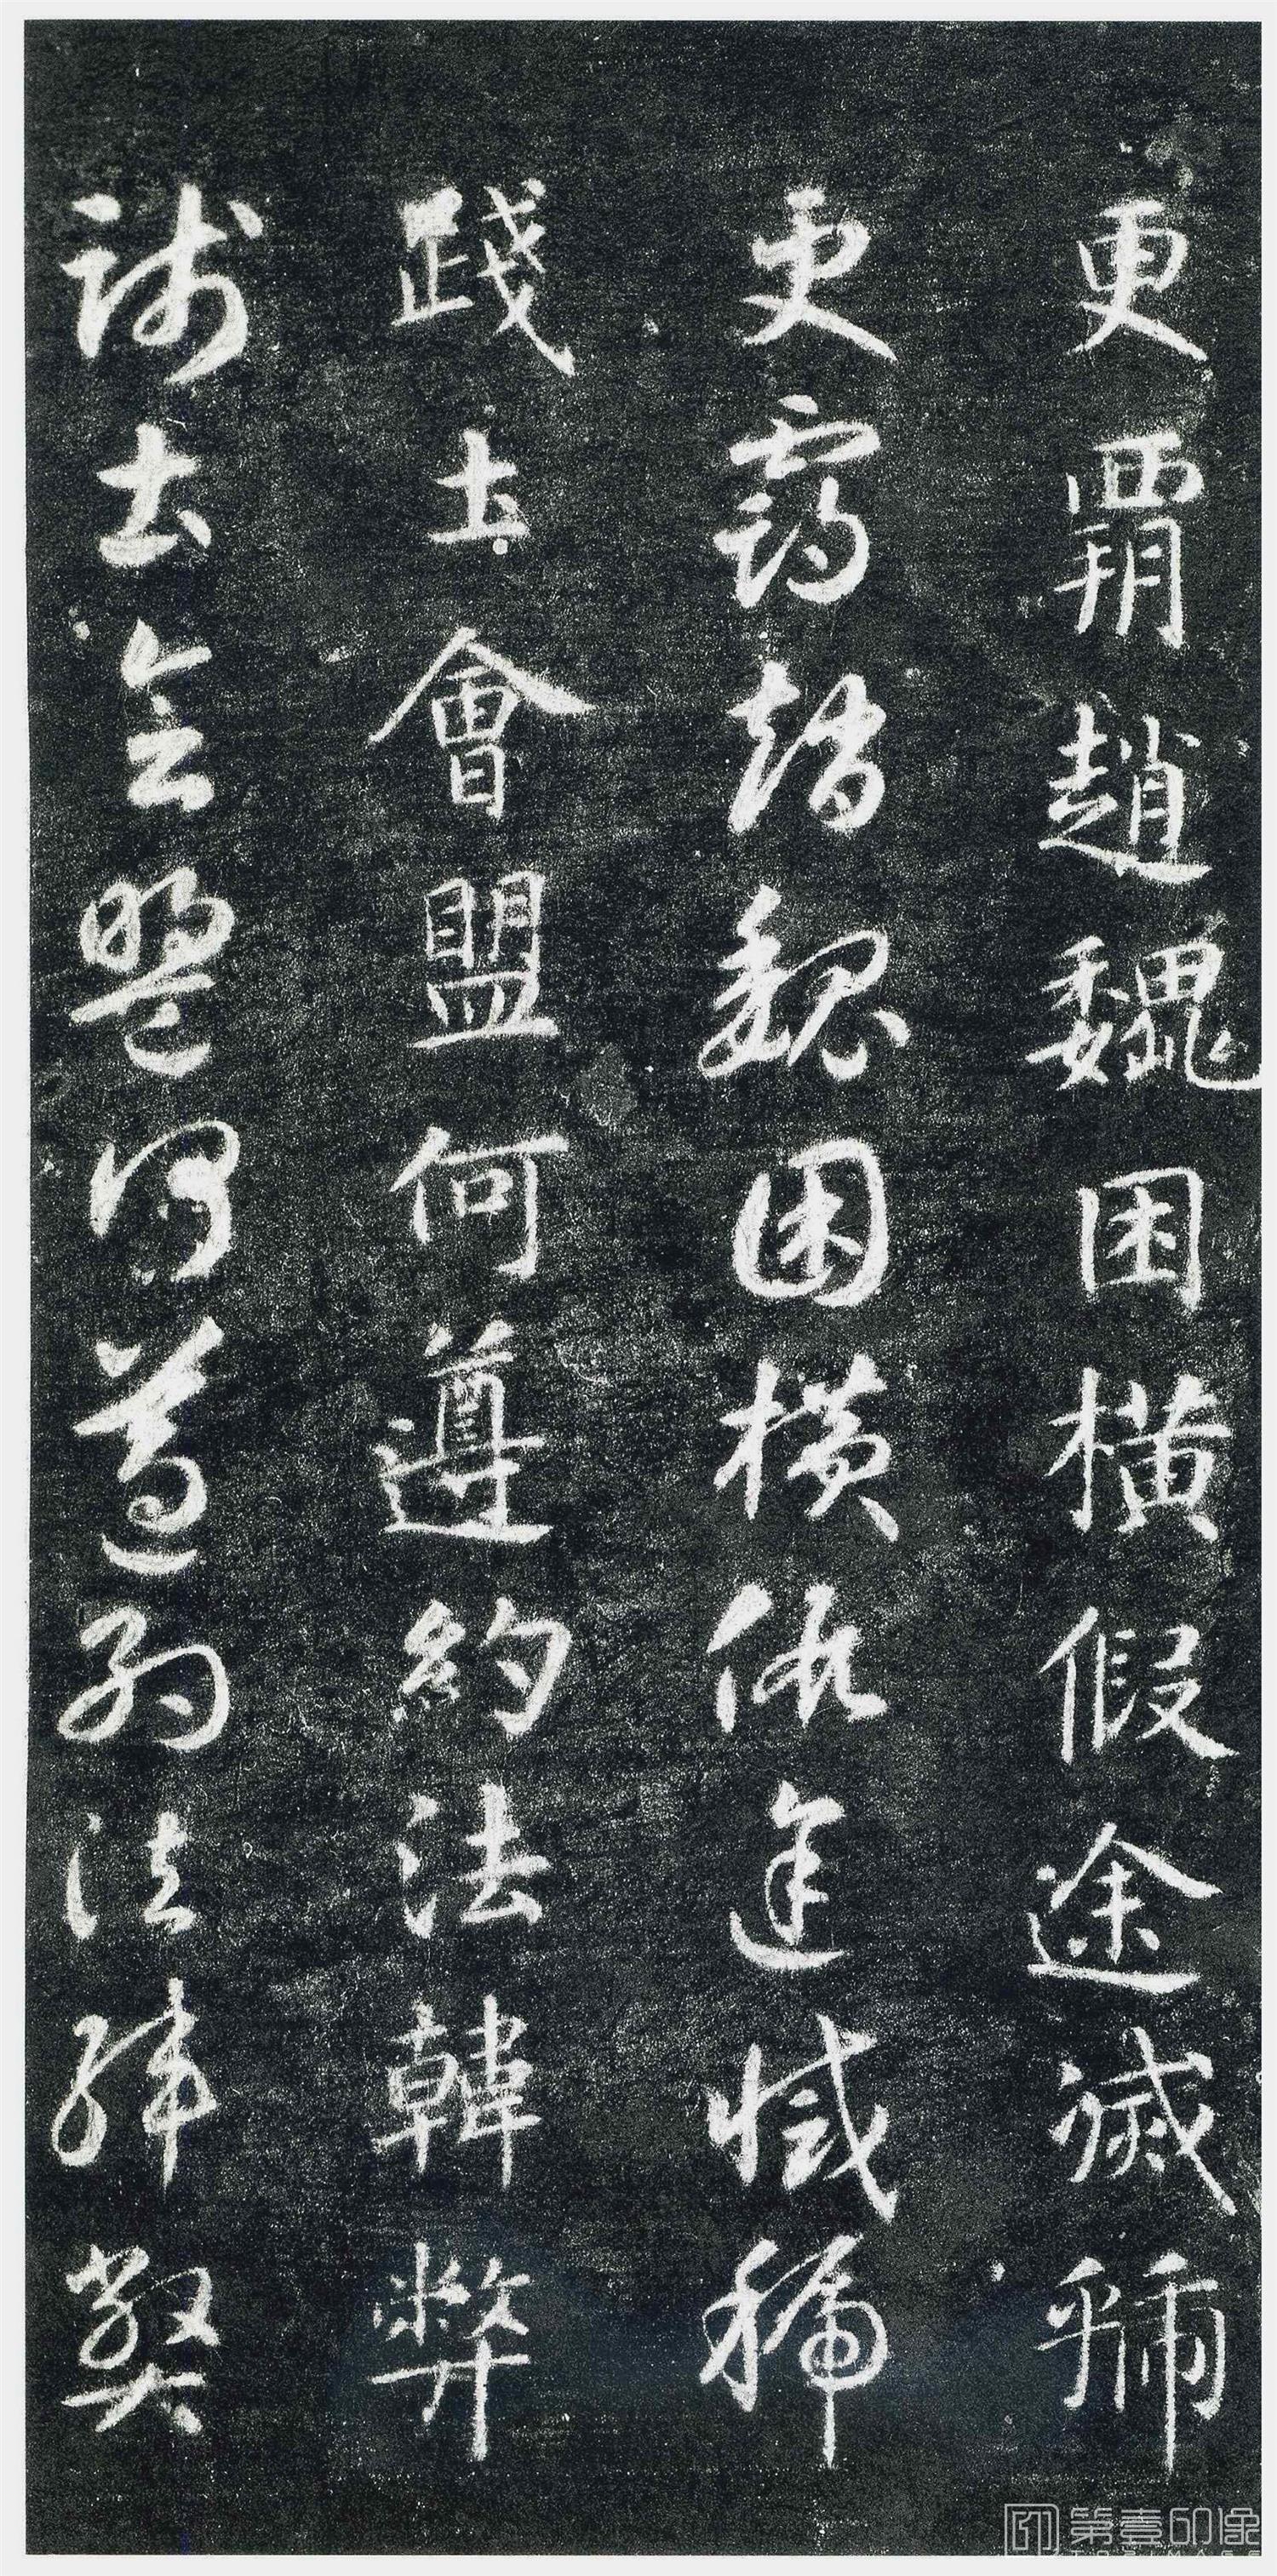 更霸趙魏困橫假途滅虢
更霸趙魏困橫假途滅虢
踐土會盟何遵約法韓弊
踐土會盟何遵約法韓弊
第壹印像